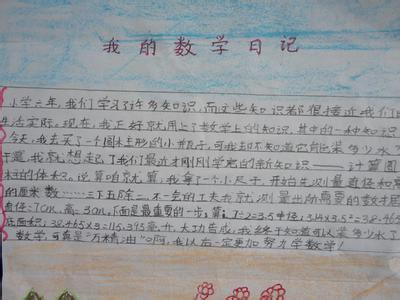 我的数学日记
小学六年,我们学习了许多知识,而这些知识都很接近我们的
生活实际。现在,我正好就用上了数学上的知识,其中的一种数
今天,我去买了一个圆柱形的小瓶子,可我却不知道它能装多少水了
于是,我就想起了我们最近才刚刚学完的新知识——计算圆
柱的体积。说算咱就算,我拿了一个小尺子,开始先测量直径和高
的厘米数……三下五除二,不一会的工夫我就测量出所需要的数才居
直径:7cm,高:3cm,下面是最重要的一步:算:7÷2=3.5 3.14×3.5²=38.465
底面积:38.465×3=115.395毫升,大功告成,我终于知道可以装多少水了
数学,可真是"万精油"啊,我以后一定更加努力学数学!